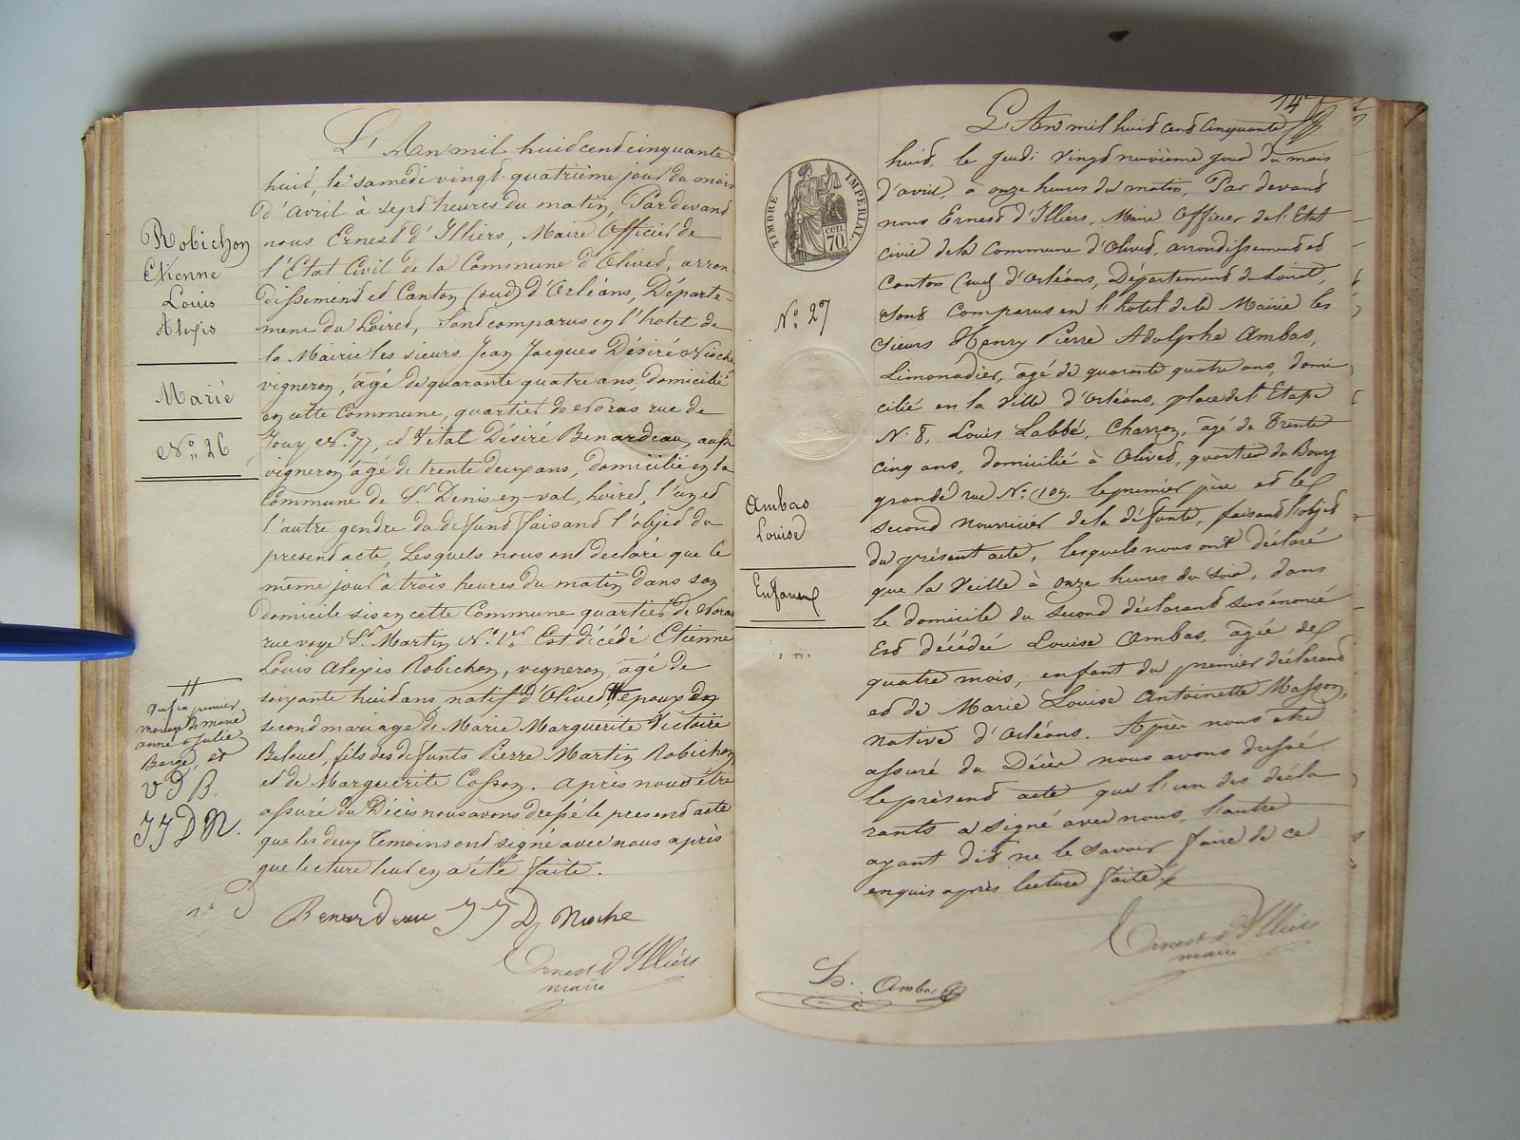 L'An mil huit cent cinquante
huit, le samedi vingt quatrième jour du mois
d'Avril à sept heures du matin, Pardevant
nous Ernest d'Illiers, Maire Officier de
l'Etat Civil de la Commune d'Olivet, arron
dissement et Canton (sud) d'Orléans, Départe-
ment du Loiret, sont comparus en l'hotel de
la Mairie les sieurs Jean Jacques Désiré
vigneron, âgé de quarante quatre ans, domicilié
en cette Commune, quartier de rue de
Jouy No. 77, et Vital Désiré Benardeau, aussi
vigneron âgé de trente deux ans, domicilié en la
Commune de St. Denis-en-val, Loiret, l'un et
l'autre gendre du défunt faisant l'objet du
present acte, Lesquels nous ont declaré que le
même jour à trois heures du matin dans son
domicile sis en cette Commune quartier de
rue voye St. Martin, No. 1er. Est décédé Etienne
Louis Alexis Robichon, vigneron, âgé de
soixante huit ans, natif d'Olivet # époux en
second mariage de Marie Marguerite Victoire
fils des defunts Pierre Martin Robichon
et de Marguerite Cosson. Après nous être
assuré du Décès nous avons dressé le present acte
que les deux Temoins ont signé avec nous après
que lecture leur en a été faite.
Robichon
Etienne
Louis
Alexis
Marié
No. 26
#
premier
mariage de marie
anne Julie
et
V D B.
J J D N.
Benardeau J J D Noche
Ernest d'Illiers
maire
14
L'An mil huit cent cinquante
huit, le Jeudi vingt neuvième jour du mois
d'avril, à onze heures du matin, Par devant
nous Ernest d'Illiers, Maire Officier de l'Etat
civil de la Commune d'Olivet, arrondissement et
Canton (sud) d'Orléans, Département du Loiret,
sont Comparus en l'hotel de la Mairie les
sieurs Henry Pierre Adolphe Ambas,
Limonadier, âgé de quarante quatre ans, domi
cilié en la Ville d'Orléans, place de l'Etape
No. 8, Louis Labbé, Charron, âgé de Trente
cinq ans, domicilié à Olivet, quartier du Bourg
grande rue No. 109. le premier père et le
second nourricier de la défunte, faisant l'objet
du présent acte, lesquels nous ont déclaré
que la Veille à onze heures du soir, dans
le domicile du second déclarant susénoncé
Est décédée Louise Ambas, agée de
quatre mois, enfant du premier déclarant
et de Marie Louise Antoinette Masson,
native d'Orléans. Après nous être
assuré du Décès nous avons dressé
le présent acte que l'un des décla
rants a signé avec nous, l'autre
ayant dit ne le savoir faire de ce
enquis après lecture faite
TIMBRE IMPERIAL
70
No. 27
Ambas
Louise
Enfant
Ernest d'Illiers
maire
Ambas